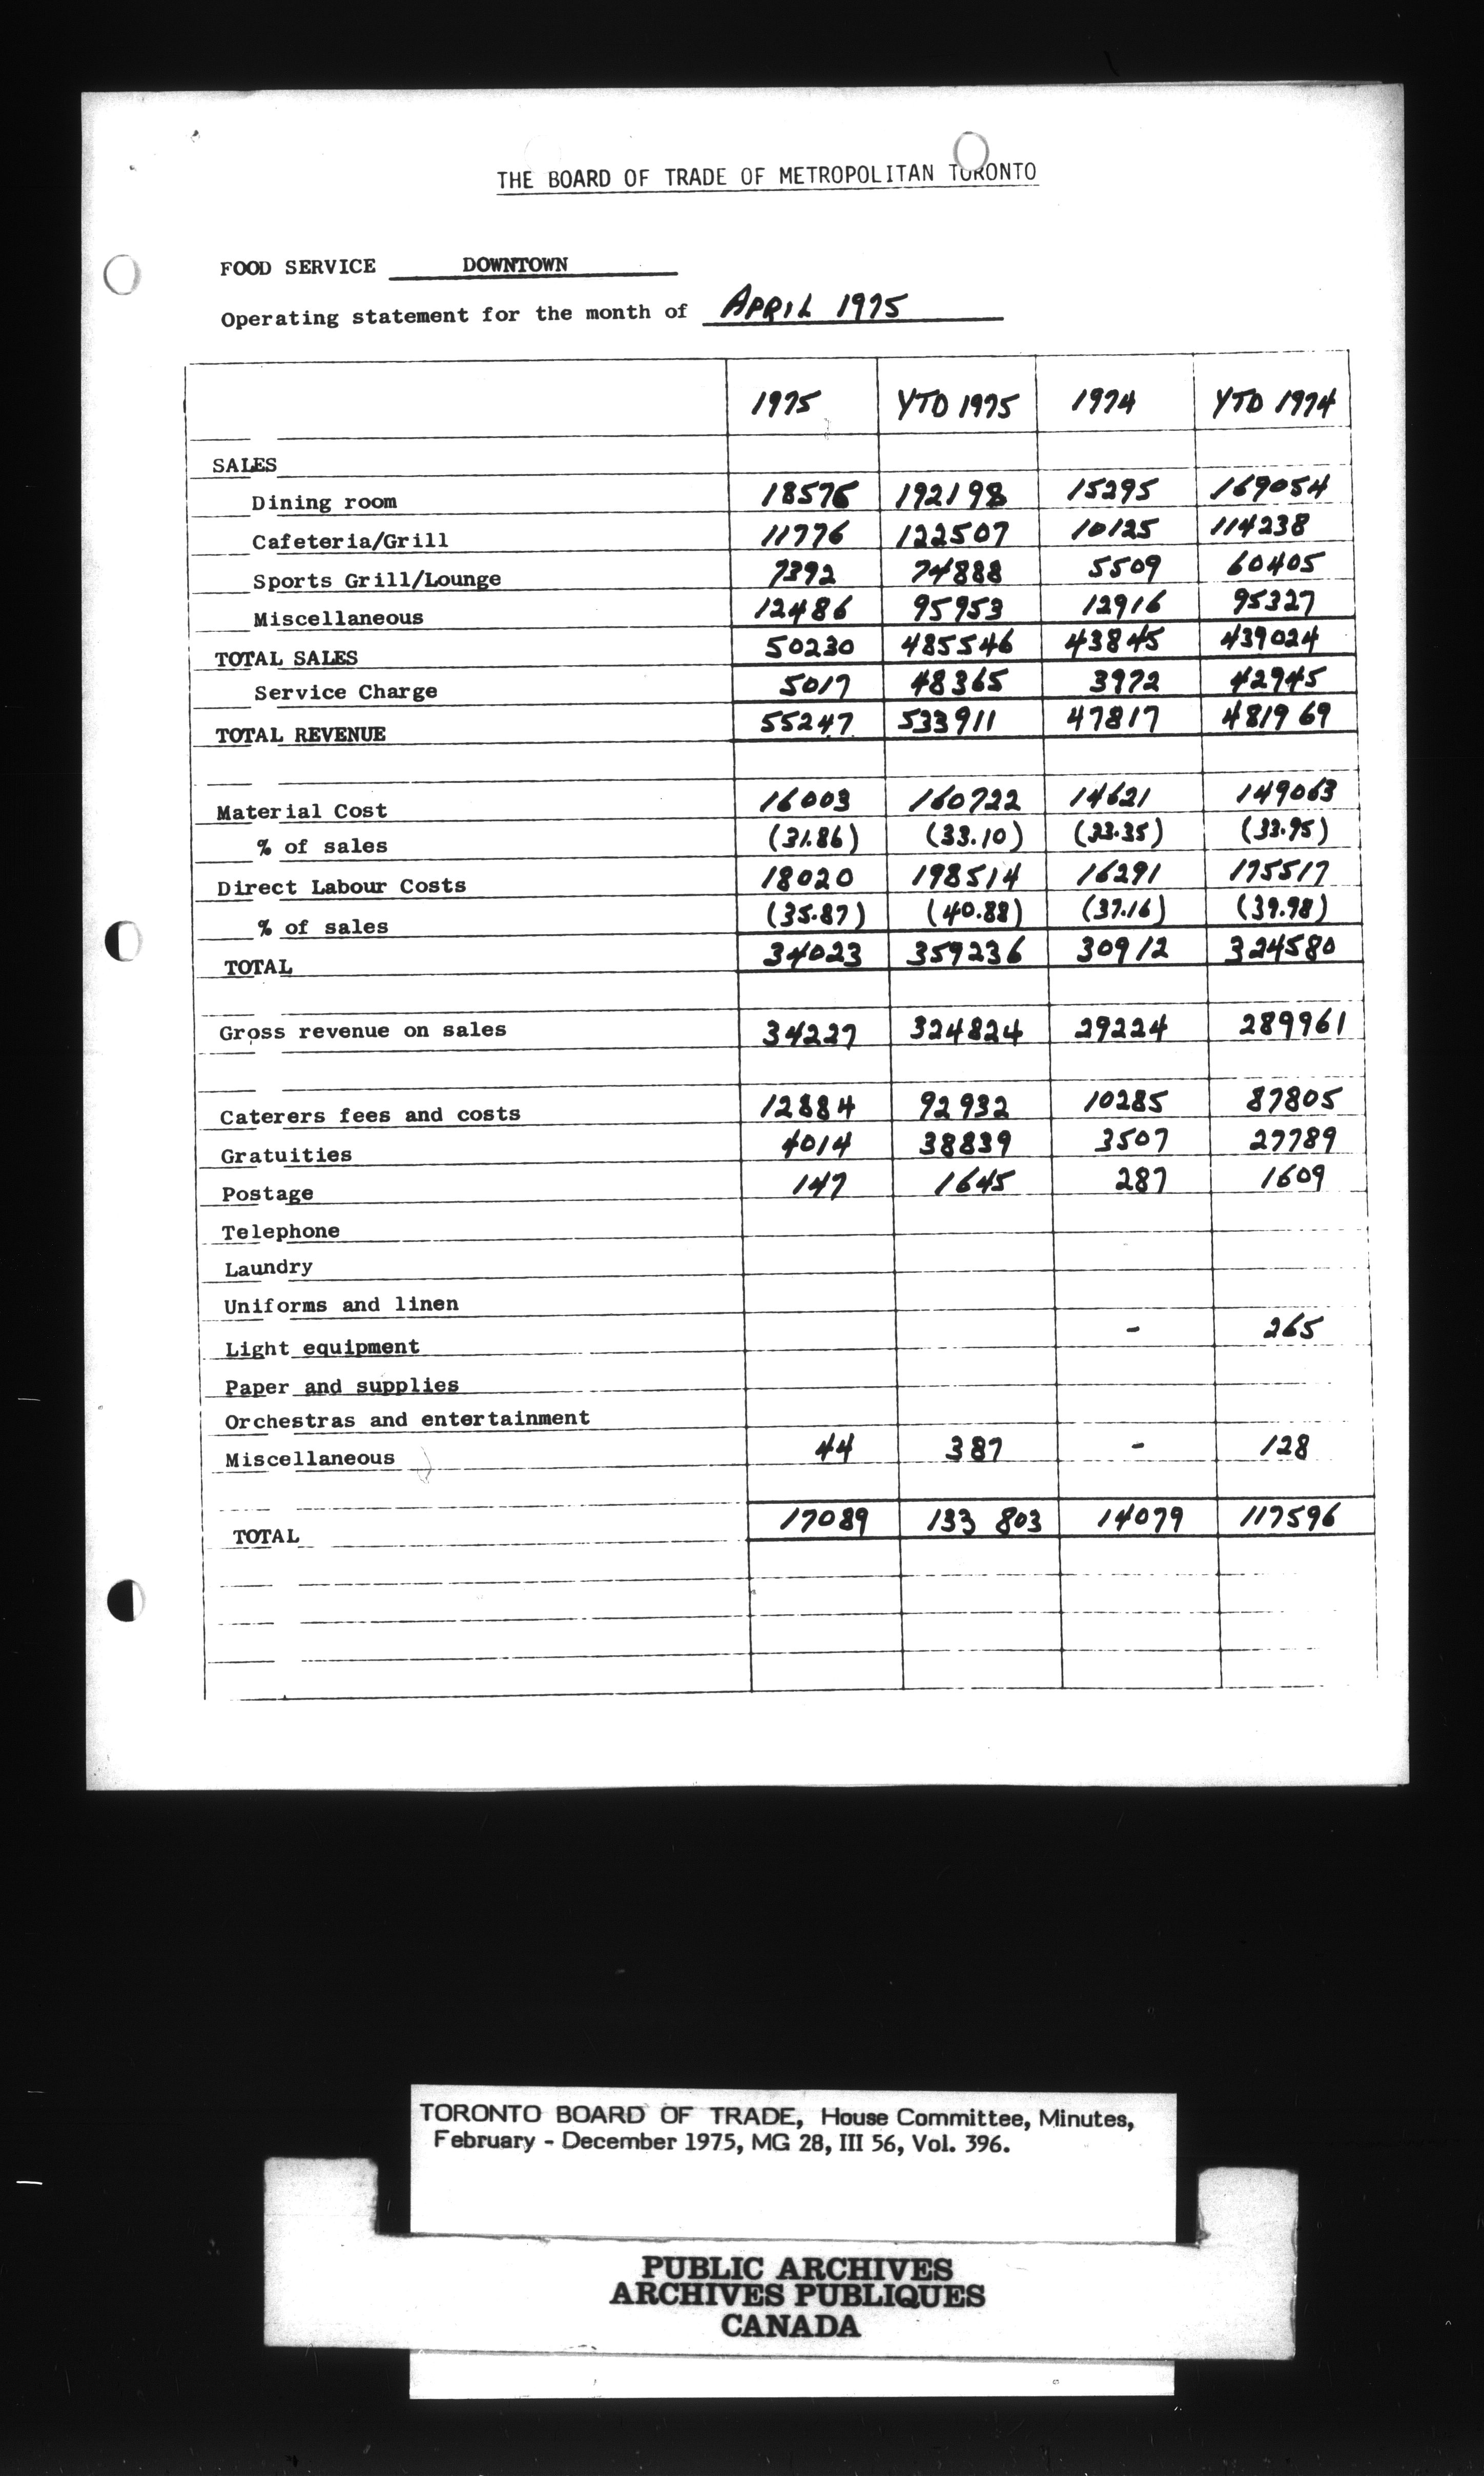 THE BOARD OF TRADE OF METROPOLITAN TORONTO
FOOD SERVICE DOWNTOWN
Operating statement for the month of APRIL 1975
1975 YTD 1975 1974 YTD 1974
SALES
Dining room 18576 192198 15295 169054
Cafeteria/Grill 11776 122507 10125 114238
Sports Grill/Lounge 7392 74888 5509 60405
Miscellaneous 12486 95953 12916 95327
TOTAL SALES 50230 485546 43845 439024
Service Charge 5017 48365 3972 42945
TOTAL REVENUE 55247 533911 47817 481969
Material Cost 16003 160722 14621 149063
% of sales (31.86) (33.10) (33.35) (33.95)
Direct Labour Costs 18020 198514 16291 175517
% of sales (35.87) (40.88) (37.16) (39.98)
TOTAL 34023 359236 30912 324580
Gross revenue on sales 34227 324824 29224 289961
Caterers fees and costs 12884 92932 10285 87805
Gratuities 4014 38839 3507 27789
Postage 147 1645 287 1609
Telephone
Laundry
Uniforms and linen
Light equipment - 265
Paper and supplies
Orchestras and entertainment
Miscellaneous 44 387 - 128
TOTAL 17089 133 803 14079 117596
TORONTO BOARD OF TRADE, House Committee, Minutes,
February - December 1975, MG 28, III 56, Vol. 396.
PUBLIC ARCHIVES
ARCHIVES PUBLIQUES
CANADA